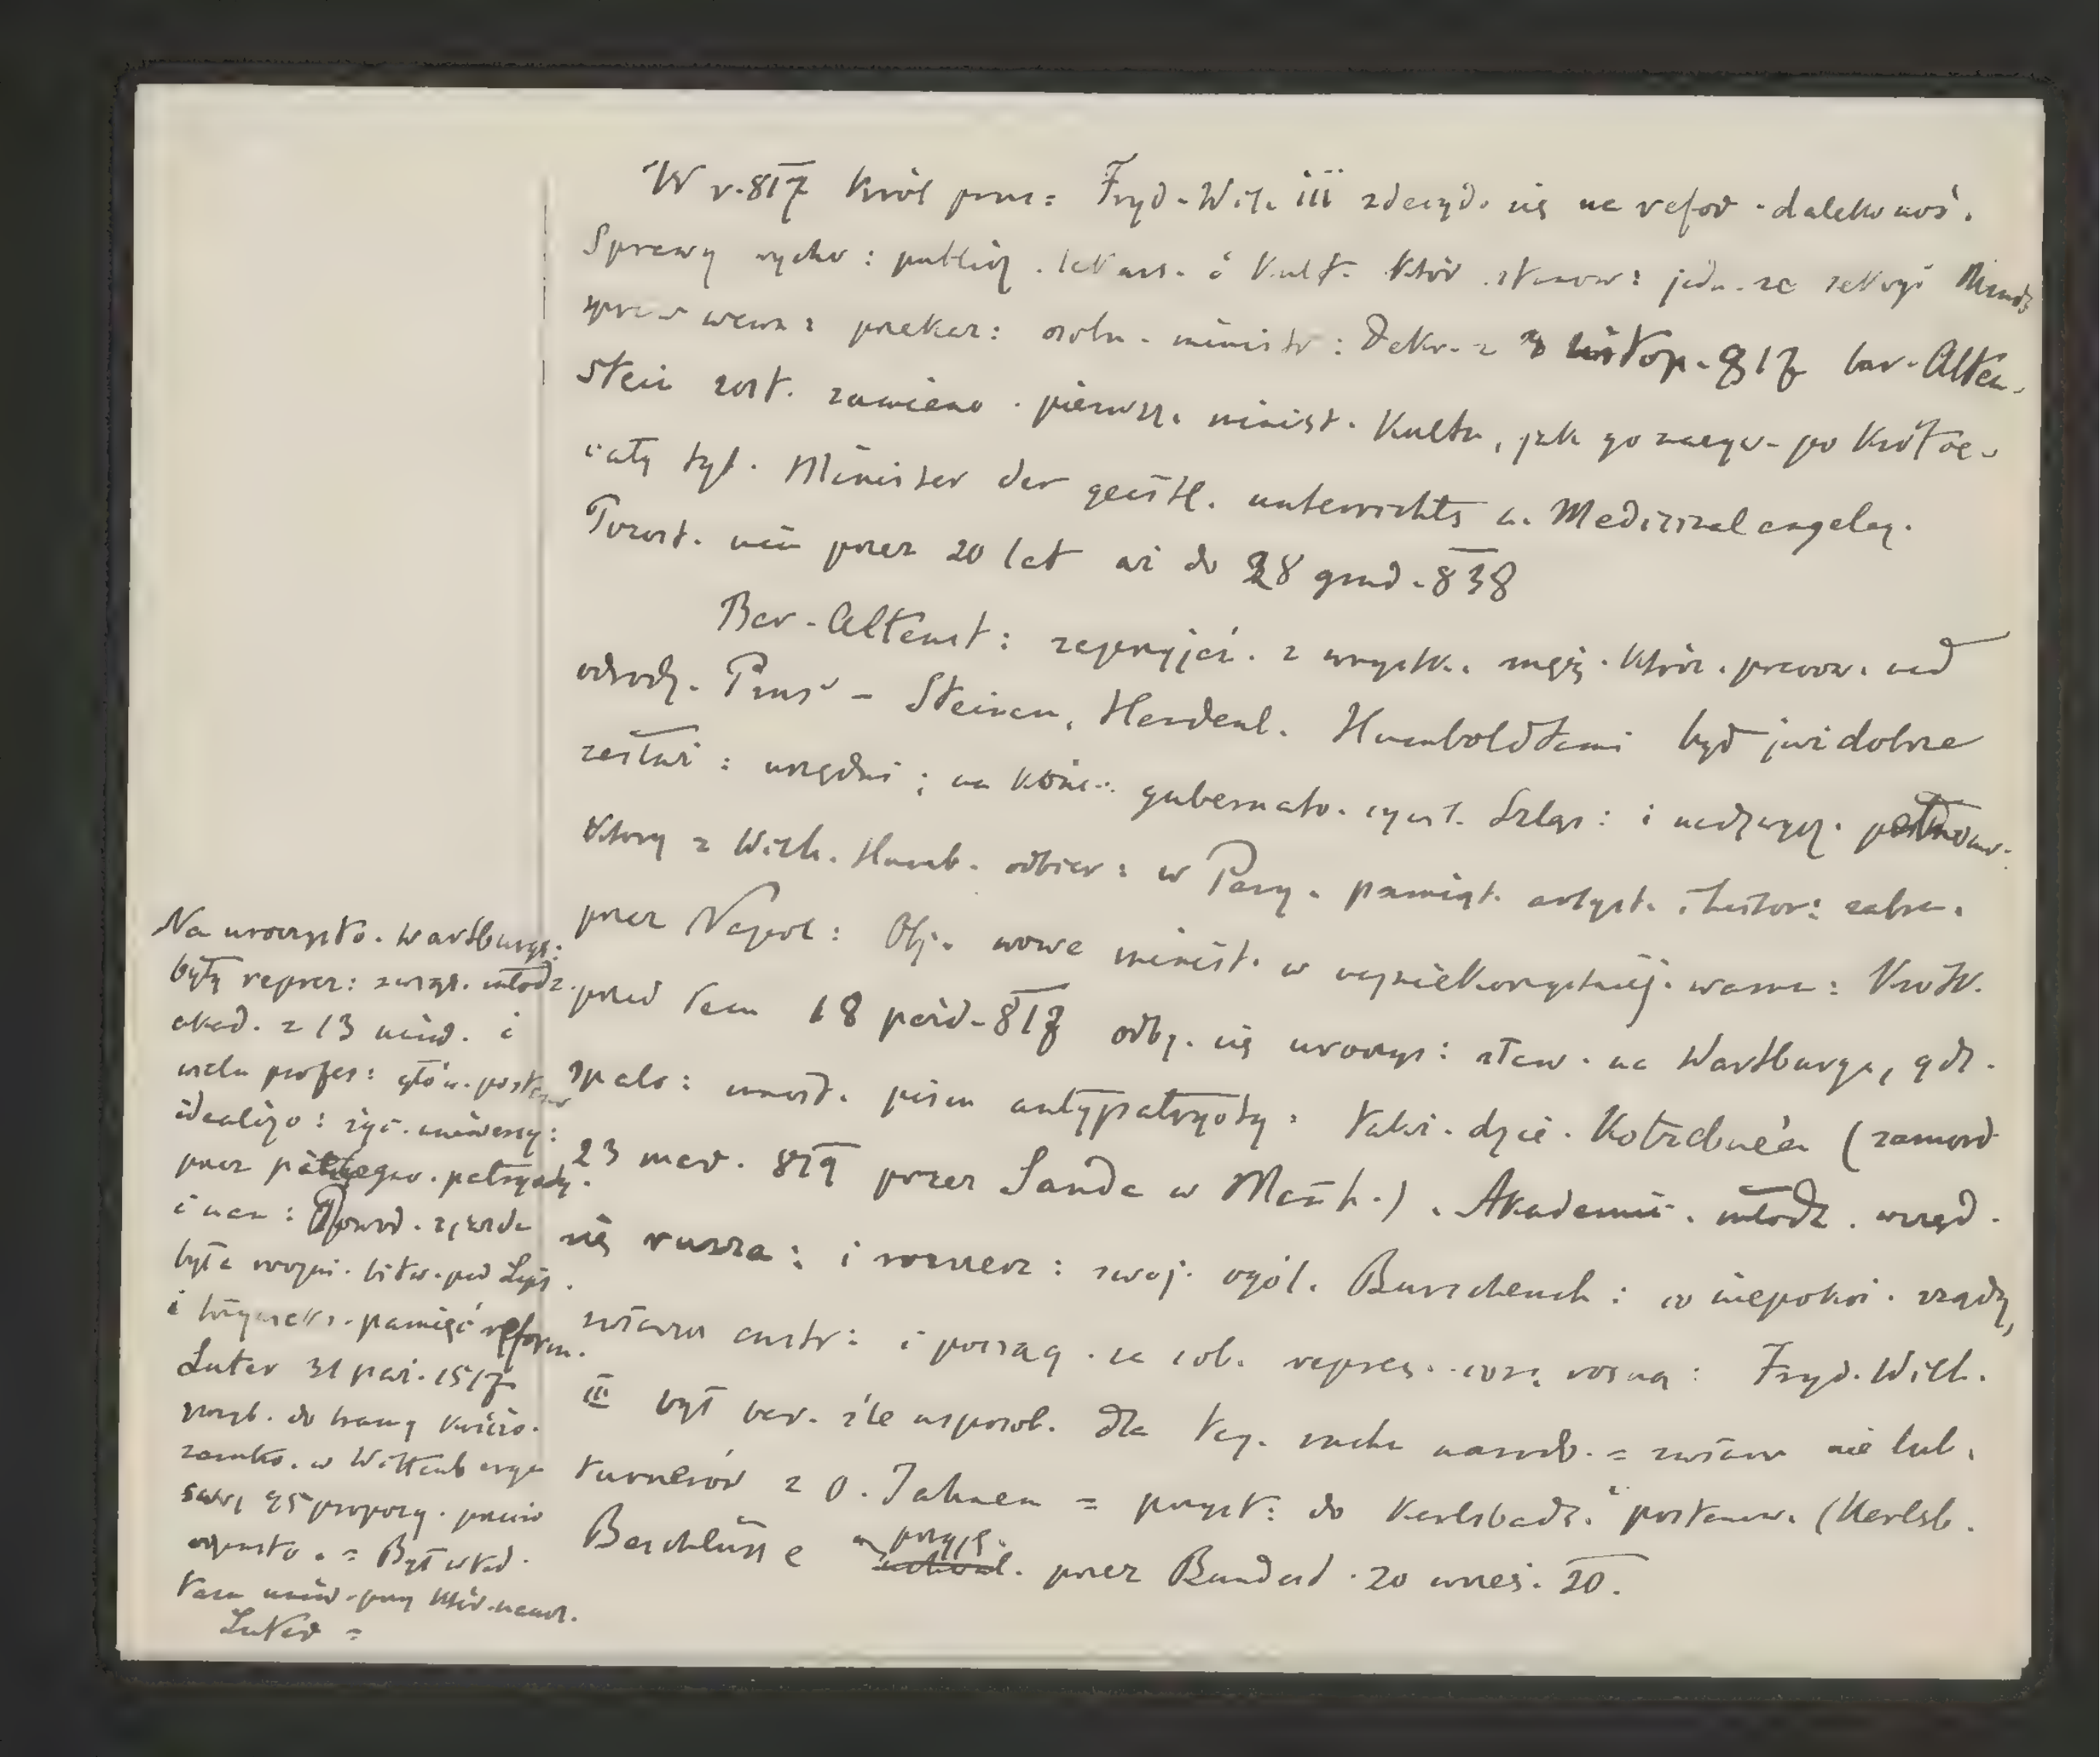 W r. 817 Król prus: Fryd. Wil. iii zdecyd. się na refor. dalekonoś.
Sprawy wycho: publicz. lekars. i Kult. któr. stanow: jedn. ze sekcyi Minist
spraw wewn: przekaz: osobn. minist: Dekr. z 3 listop. 817 bar. Alten-
stein zost. zamieno. pierwsz. minist. Kultu, jak go nazyw. po krótce
cały tyt. Minister der geistl. unterrichts u. Medizinalangeleg.
Pozost. nim przez 20 lat aż do 28 grud. 838
Bar. Altenst: zaprzyjaź. z wszystk. męż. któr. pracow. nad
odrodz. Prus - Steinem, Hardenb. Humboldtami był już dobrze
zasłuż: urzędni; na końc. gubernato. cywil. Szląs: i nadzwycz. pełnom:
który z Wilh. Humb. odbier: w Pary. pamiąt. artyst. i histor: zabra.
przez Napol: Obj. nowe minist. w najniekorzystniej. warun: Krótk.
przed tem 18 paźd. 817 odby. się uroczys: sław. na Wartburgu, gdz.
spalo: mnóst. pism antypatryoty: także dzie. Kotzebue'a (zamord
23 mar. 819 przez Sanda w Manh.). Akademic. młodz. wszęd.
się rusza: i rozszerz: swoj. ogól. Burschensch: co niepokoi. rządy,
zwłaszcza austr: i pociąg. za sob. repres. coraz rosną: Fryd. Wilh.
III był bar. źle usposob. dla teg. ruchu narod. = zwłasz. nie lub.
turnerów z O. Jahnem = przyst: do Karlsbadz. postanow. (Karlsb.
Beschlüsse przyję.
uchwal. przez Bundest. 20 wrześ. 20.
Na uroczysto. Wartburgs:
były reprez: związ. młodz.
akad. z 13 uniw. i
wielu profes: głów. postanow
idealizo: życ. uniwersy:
przez pielęgno. patryoty.
i nau: Powod. zjazdu
była roczni. bitw. pod Lips.
i trzywiek. pamięć reform.
Luter 31 paź. 1517
przyb. do bramy kościo.
zamko. w Wittenberge
swoj 95 propozy. przeciw
odpusto. = Był wted.
tam uniw. przy któr. naucz.
Luter =